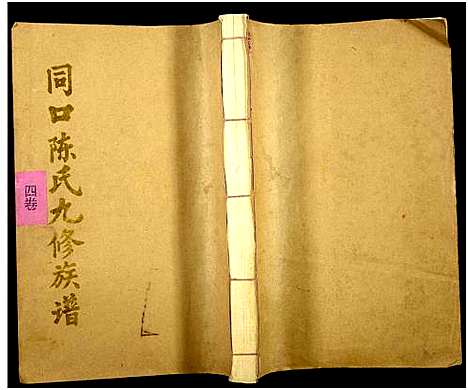 同口陈氏九修族谱
四卷